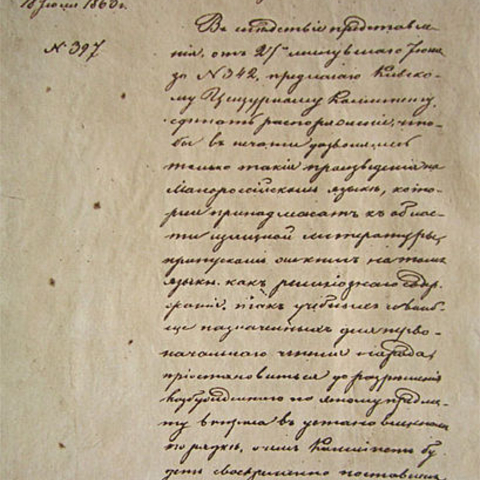 18 Июля 1863 г.
№ 397
Въ слѣдствіе представле-
нія, отъ 27го минувшаго Іюня
за № 342, предлагаю Кіевско-
му Цензурному Комитету
сдѣлать распоряженіе, что-
бы въ печати дозволялись
только такія произведенія на
Малороссійскомъ языкѣ, кото-
рыя принадлежатъ къ облас-
ти изящной литературы;
пропускомъ же книгъ на томъ
языкѣ какъ религіознаго содер-
жанія, такъ учебныхъ и вооб-
ще назначенныхъ для перво-
начальнаго чтенія народа,
пріостановиться до разрѣшенія
возбужденнаго по этому предме-
ту вопроса въ установленномъ
порядкѣ, о чемъ Комитетъ бу-
детъ своевременно поставленъ